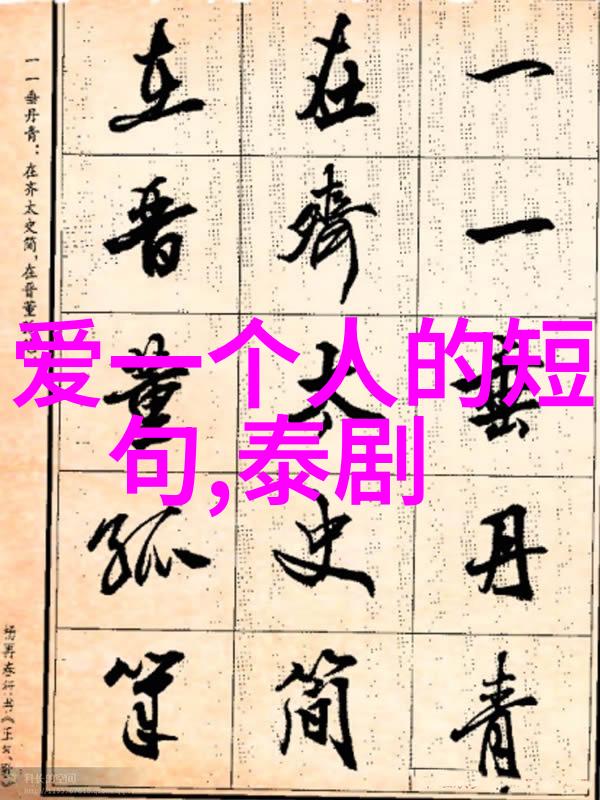 爱一个人的短
句,泰剧
一一垂丹青
在齊太史简
在晋董狐筆
一一垂丹青：在齐太史简，在晋董
杨再春行书《正气歌》
科长的空间